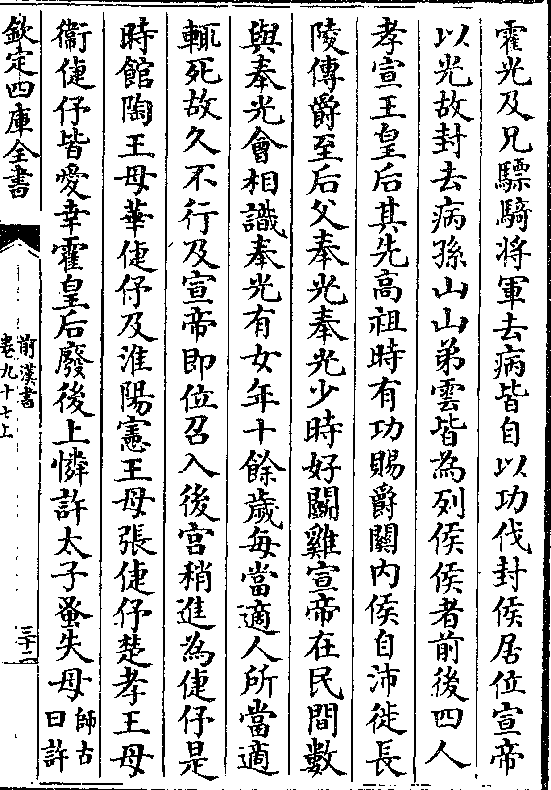 霍光及兄驃騎將軍去病皆自以功伐封侯居位宣帝
以光故封去病孫山山弟雲皆為列侯侯者前後四人
孝宣王皇后其先高祖時有功賜爵關內侯自沛徙長
陵傳爵至后父奉光奉光少時好鬬雞宣帝在民間數
與奉光會相識奉光有女年十餘歲每當適人所當適
輒死故久不行及宣帝即位召入後宮稍進為倢伃是
時館陶王母華倢伃及淮陽憲王母張倢伃楚孝王母
衞倢伃皆愛幸霍皇后廢後上憐許太子蚤失母師古
曰許
欽定四庫全書
前漢書
卷九十七上
三十二